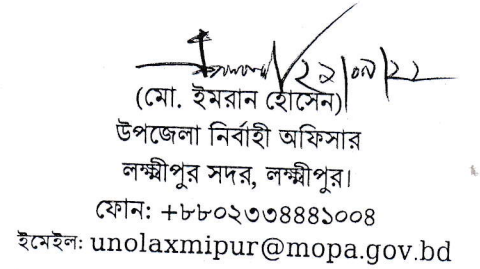 ২২|০৯|২২
(মো. ইমরান হোসেন)
উপজেলা নির্বাহী অফিসার
লক্ষ্মীপুর সদর, লক্ষ্মীপুর।
ফোন: +৮৮০২৩৩৪৪৪১০০৪
ইমেইল: unolaxmipur@mopa.gov.bd